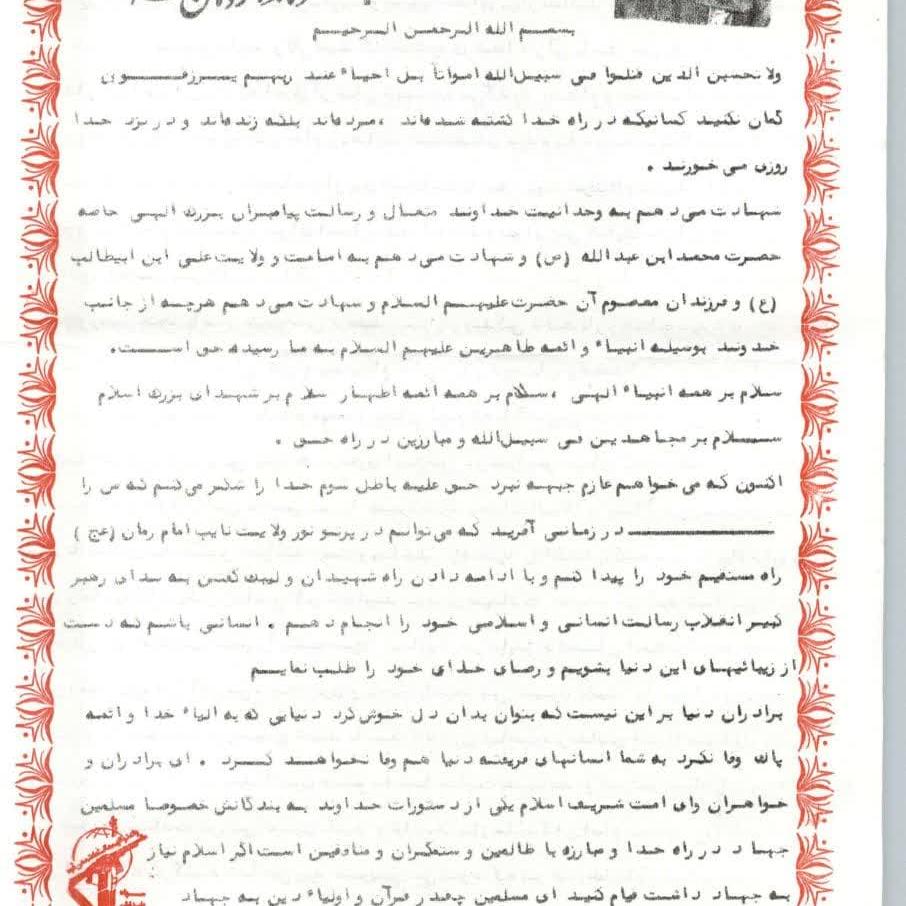 بسم الله الرحمن الرحیم
ولا تحسبن الذین قتلوا فی سبیل‌الله امواتاً بل احیاء عند ربهم یرزقون
گمان نکنید کسانیکه در راه خدا کشته شده‌اند ، مرده‌اند بلکه زنده‌اند و در نزد خدا
روزی می خورند .
شهادت می دهم به وحدانیت خداوند متعال و رسالت پیامبران بزرگ الهی خاصه
حضرت محمد ابن عبدالله (ص) و شهادت می دهم به امامت و ولایت علی ابن ابیطالب
(ع) و فرزندان معصوم آن حضرت علیهم السلام و شهادت می دهم هرچه از جانب
خدوند بوسیله انبیاء و ائمه طاهرین علیهم السلام به ما رسیده حق است.
سلام بر همه انبیاء الهی ، سلام بر همه ائمه اطهار سلام بر شهدای بزرگ اسلام
سلام بر مجاهدین فی سبیل‌الله و مبارزین در راه حق .
اکنون که می خواهم عازم جبهه نبرد حق علیه باطل شوم خدا را شکر می‌کنم که من را
در زمانی آفرید که می‌توانم در پرتو نور ولایت نایب امام زمان (عج )
راه مستقیم خود را پیدا کنم و با ادامه دادن راه شهیدان و لبیک گفتن به ندای رهبر
کبیر انقلاب رسالت انسانی و اسلامی خود را انجام دهم . انسانی باشم که دست
از زیبائیهای این دنیا بشویم و رضای خدای خود را طلب نمایم
برادران دنیا بر این نیست که بتوان بدان دل خوش کرد دنیایی که به الهاء خدا و ائمه
پاک وفا نکرد به شما انسانهای فریفته دنیا هم وفا نخواهد کرد . ای برادران و
خواهران وای امت شریف اسلام یکی از دستورات خداوند به بندگانش خصوصا مسلمین
جهاد در راه خدا و مبارزه با ظالمین و ستمگران و منافقین است اگر اسلام نیاز
به جهاد داشت قیام کنید ای مسلمین چقدر قرآن و اولیاء دین به جهاد